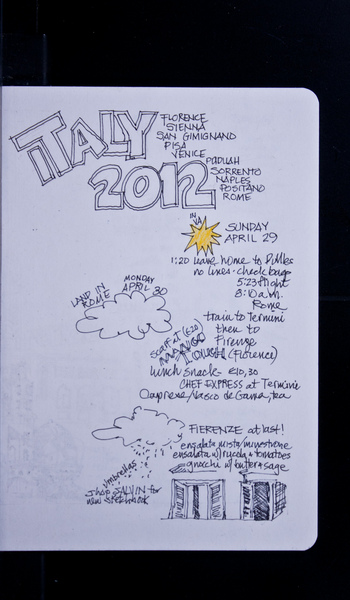 ITALY
2012
FLORENCE
SIENNA
SAN GIMIGNANO
PISA
VENICE
PADUAH
SORRENTO
NAPLES
POSITANO
ROME
IN
VA
SUNDAY
APRIL 29
1:20 leave home to Dulles
no lines - check bags
5:23 flight
8:10 a.m.
Rome
LAND IN
ROME
MONDAY
APRIL 30
train to Termini
then to
Firenze
(Florence)
scarf at (€20)
MANGO
lunch snack - €10,30
CHEF EXPRESS at Termini
Caprese/Vasco de Gama, tea
FIERENZE at last!
ensalata mista/minestrone
ensalata w/rucola + tomatoes
gnocchi w/ butter + sage
umbrellas
shop SALVINI for
new sketchbook